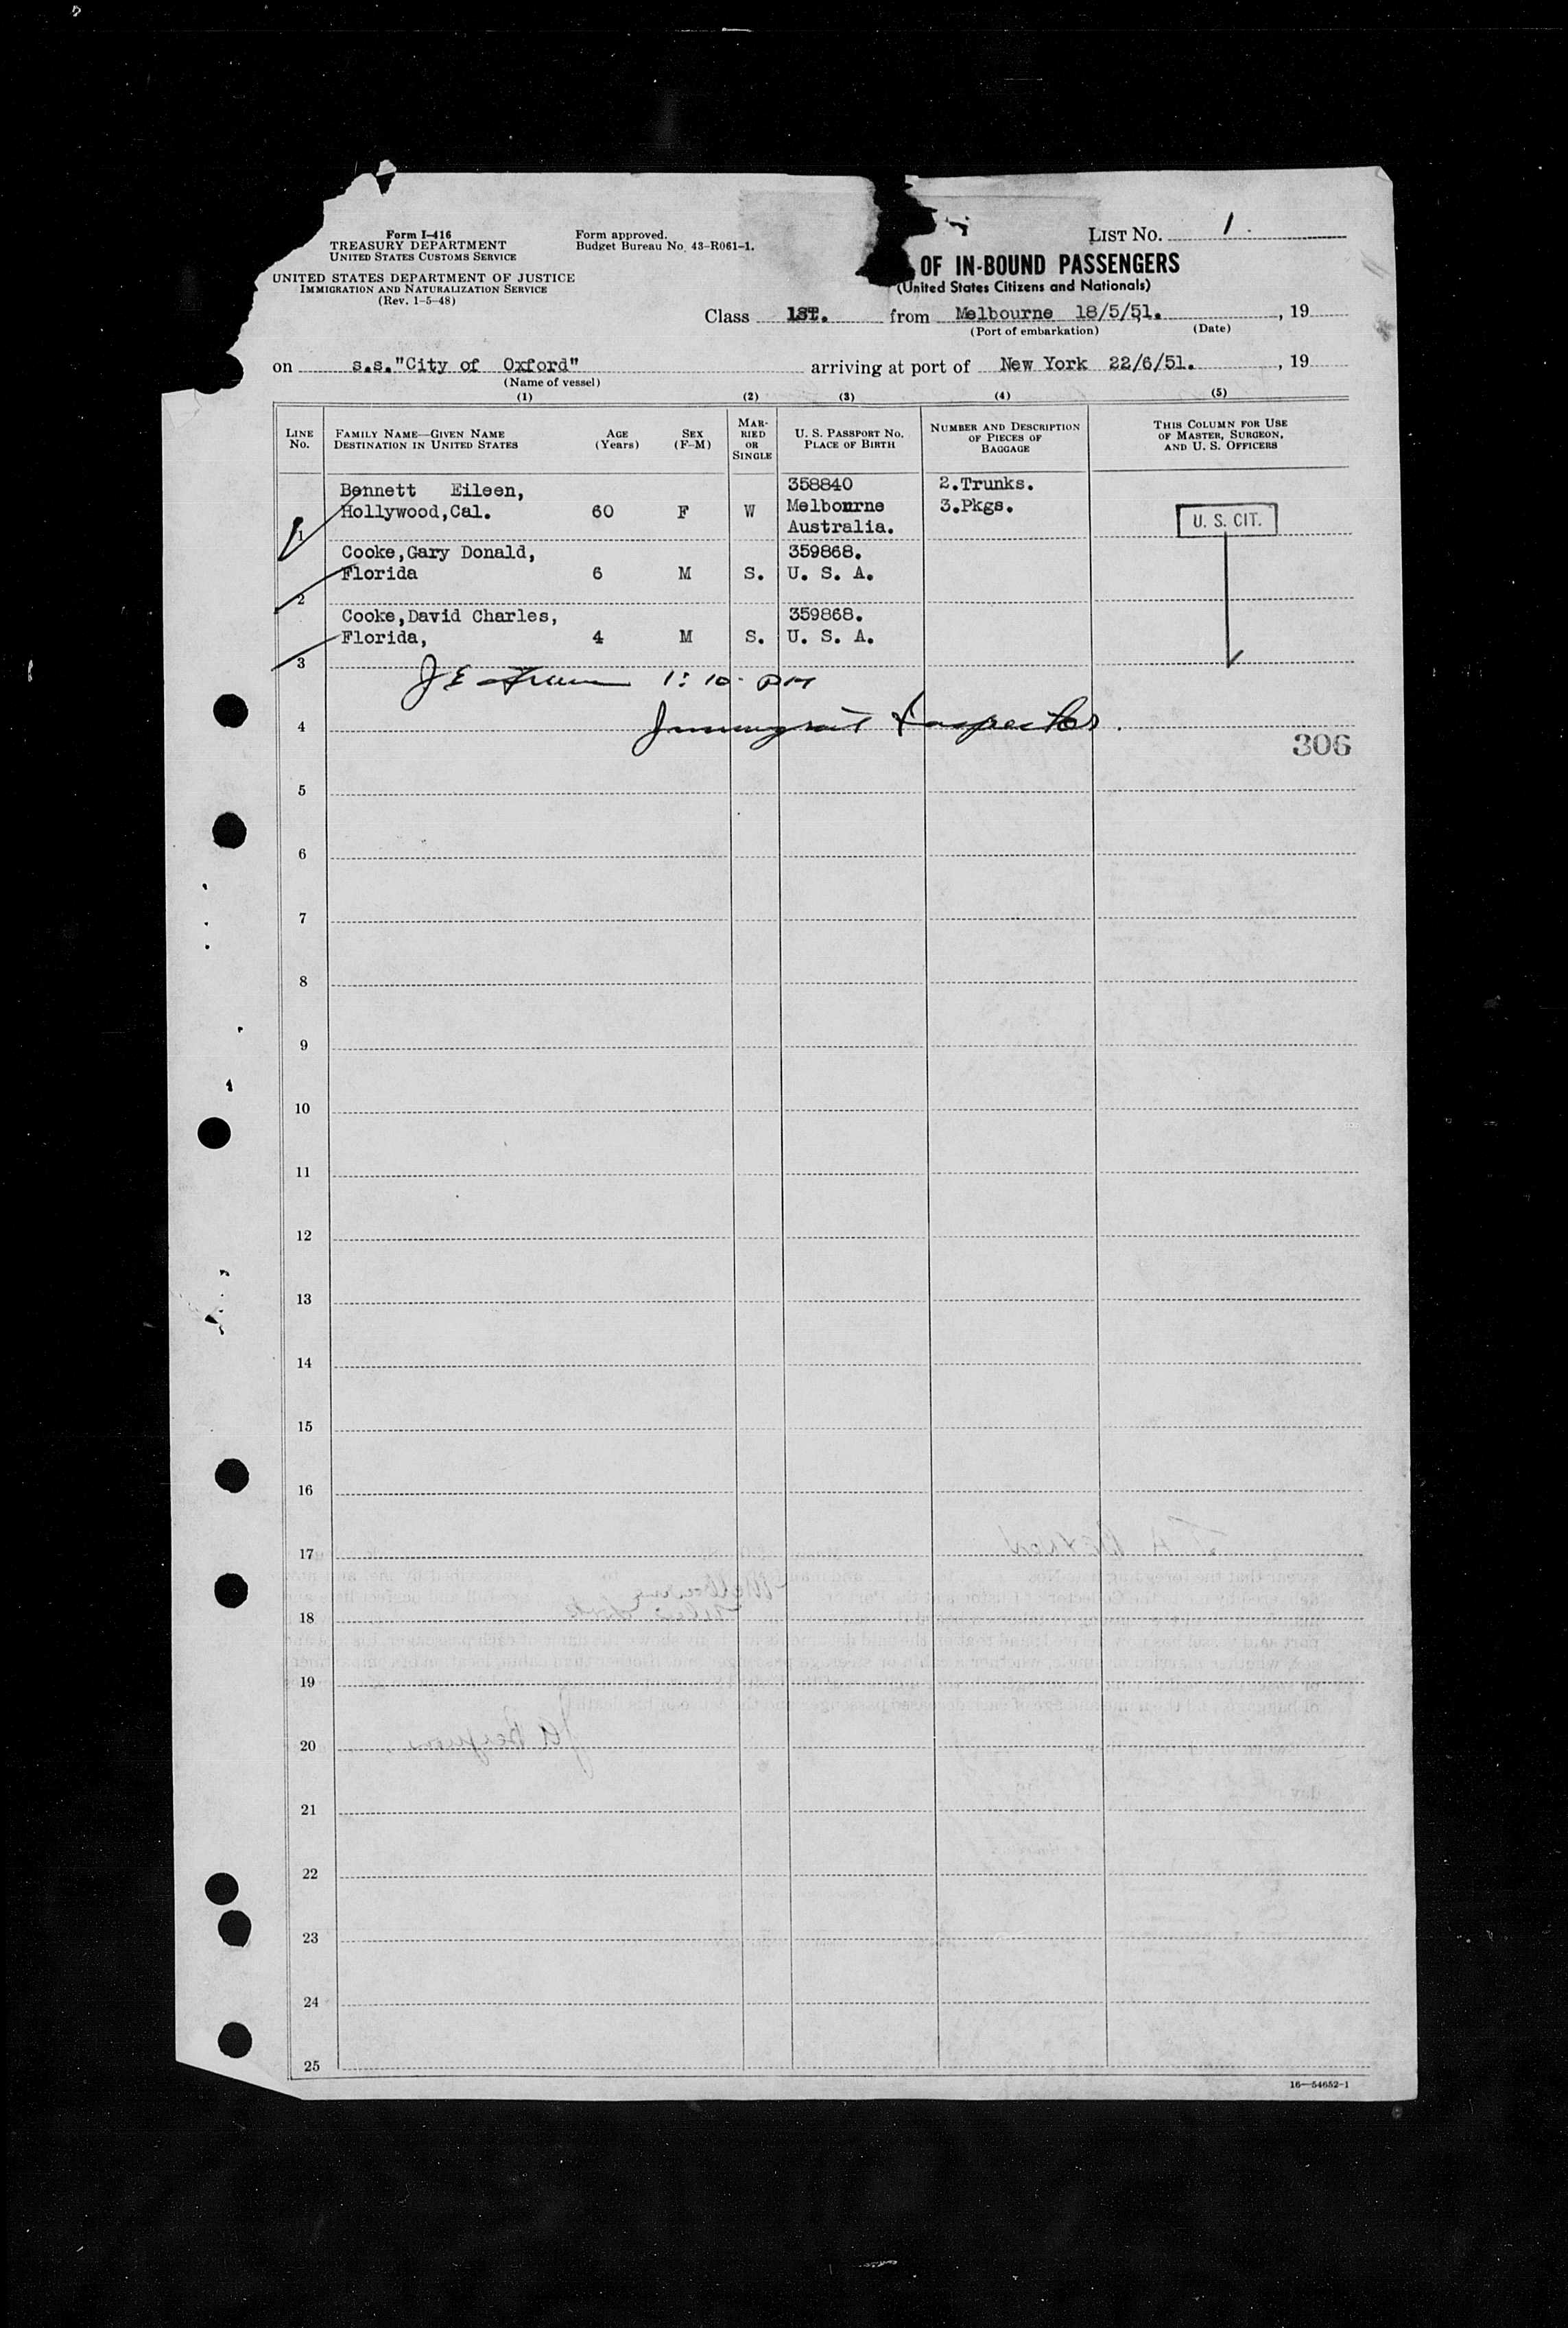 Form I-416
TREASURY DEPARTMENT
UNITED STATES CUSTOMS SERVICE
UNITED STATES DEPARTMENT OF JUSTICE
IMMIGRATION AND NATURALIZATION SERVICE
(Rev. 1-5-48)
Form approved.
Budget Bureau No. 43-R061-1.
LIST No. 1.
OF IN-BOUND PASSENGERS
(United States Citizens and Nationals)
Class 1ST. from Melbourne 18/5/51. , 19
(Port of embarkation) (Date)
on s.s."City of Oxford" arriving at port of New York 22/6/51. , 19
(Name of vessel)
(1) (2) (3) (4) (5)
LINE No. FAMILY NAME—GIVEN NAME DESTINATION IN UNITED STATES AGE (Years) SEX (F-M) MARRIED OR SINGLE U. S. PASSPORT No. PLACE OF BIRTH NUMBER AND DESCRIPTION OF PIECES OF BAGGAGE THIS COLUMN FOR USE OF MASTER, SURGEON, AND U. S. OFFICERS
Bennett Eileen, 358840 2.Trunks.
Hollywood,Cal. 60 F W Melbourne 3.Pkgs. U. S. CIT.
1 Australia.
Cooke,Gary Donald, 359868.
Florida 6 M S. U. S. A.
2
Cooke,David Charles, 359868.
Florida, 4 M S. U. S. A.
3
J E 1:10 PM
4 Immigrant Inspector.
306
5
6
7
8
9
10
11
12
13
14
15
16
17
18
19
20
21
22
23
24
25
16—54652-1